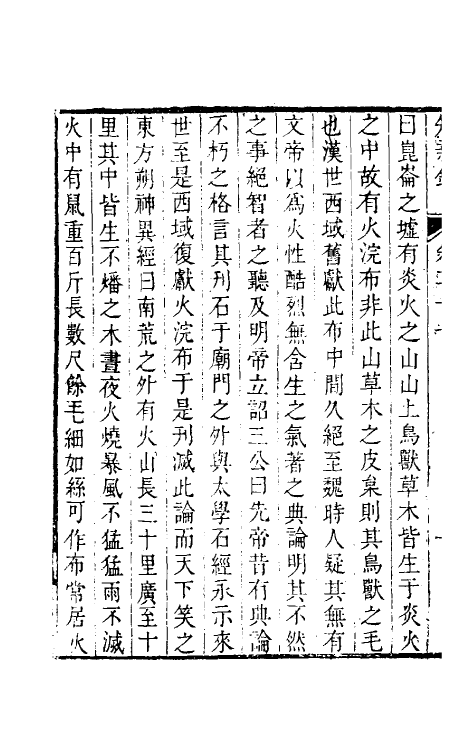 曰崑崙之墟有炎火之山山上鳥獸草木皆生于炎火
之中故有火浣布非此山草木之皮枲則其鳥獸之毛
也漢世西域舊獻此布中間久絕至魏時人疑其無有
文帝以爲火性酷烈無含生之氣著之典論明其不然
之事絕智者之聽及明帝立詔三公曰先帝昔有典論
不朽之格言其刋石于廟門之外與太學石經永示來
世至是西域復獻火浣布于是刋滅此論而天下笑之
東方朔神異經曰南荒之外有火山長三十里廣至十
里其中皆生不燼之木晝夜火燒暴風不猛猛雨不滅
火中有鼠重百斤長數尺餘毛細如絲可作布常居火